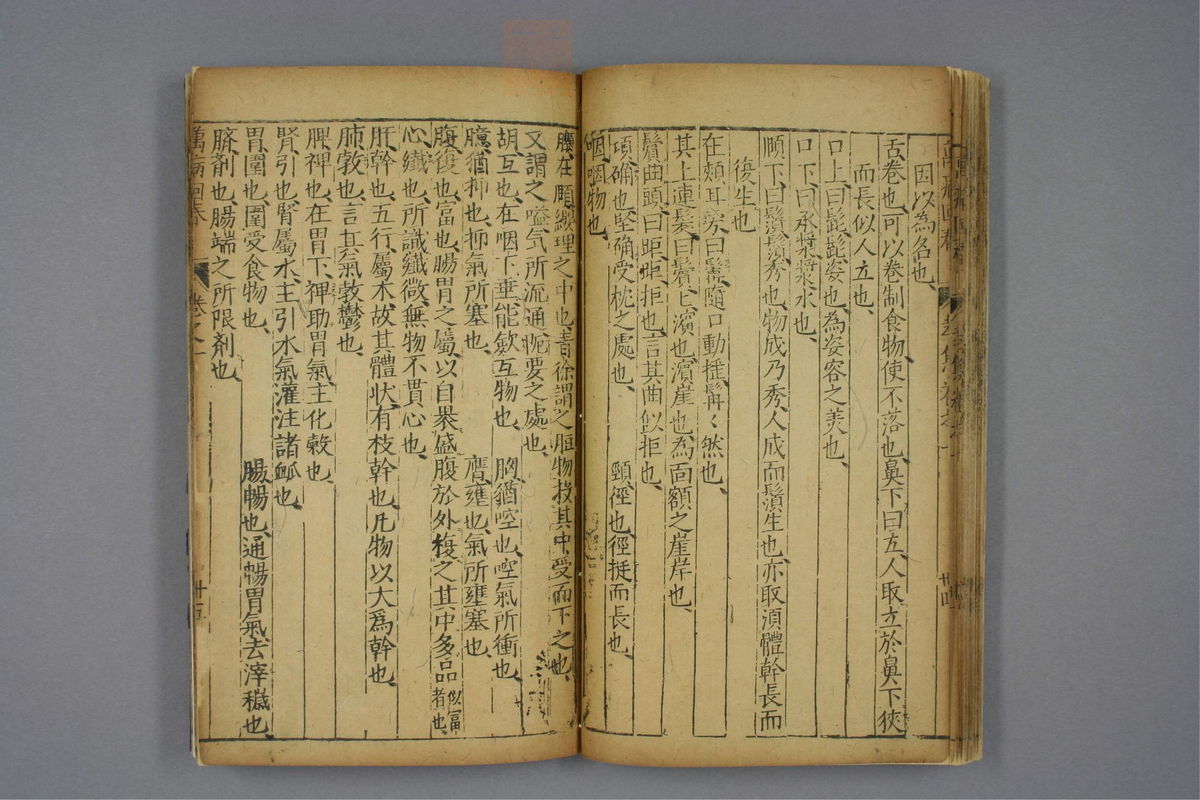 因以為名也
舌卷也可以卷制食物使不落也鼻下曰立人取立於鼻下狹
而長似人立也
口下曰承漿漿水也
口上曰髭髭姿也為姿容之美也
頤下曰鬚鬚秀也物成乃秀人成而鬚生也亦取須體幹長而
復生也
在頰耳旁曰髯隨口動搖髯々然也
其上連髮曰鬢鬢濱也濱崖也為面額之崖岸也
鬢曲頭曰距距拒也言其曲似拒也
項确也堅确受枕之處也 頸徑也徑挺而長也
咽咽物也
䐡在頤纓理之中也青徐謂之脰物投其中受而下之也
又謂之嗌氣所流通阨要之處也
胡互也在咽下垂能斂互物也 胸猶啌也啌氣所衝也
臆猶抑也抑氣所塞也 膺壅也氣所壅塞也
腹復也富也腸胃之屬以自裹盛腹於外複之其中多品似富者也
心纖也所識纖微無物不貫心也
肝幹也五行屬木故其體狀有枝幹也凡物以大爲幹也
肺敦也言其氣敦鬱也
脾裨也在胃下裨助胃氣主化穀也
腎引也腎屬水主引水氣灌注諸脈也
胃圍也圍受食物也 腸暢也通暢胃氣去滓穢也
臍劑也腸端之所限劑也
萬病回春 卷之一 廿五